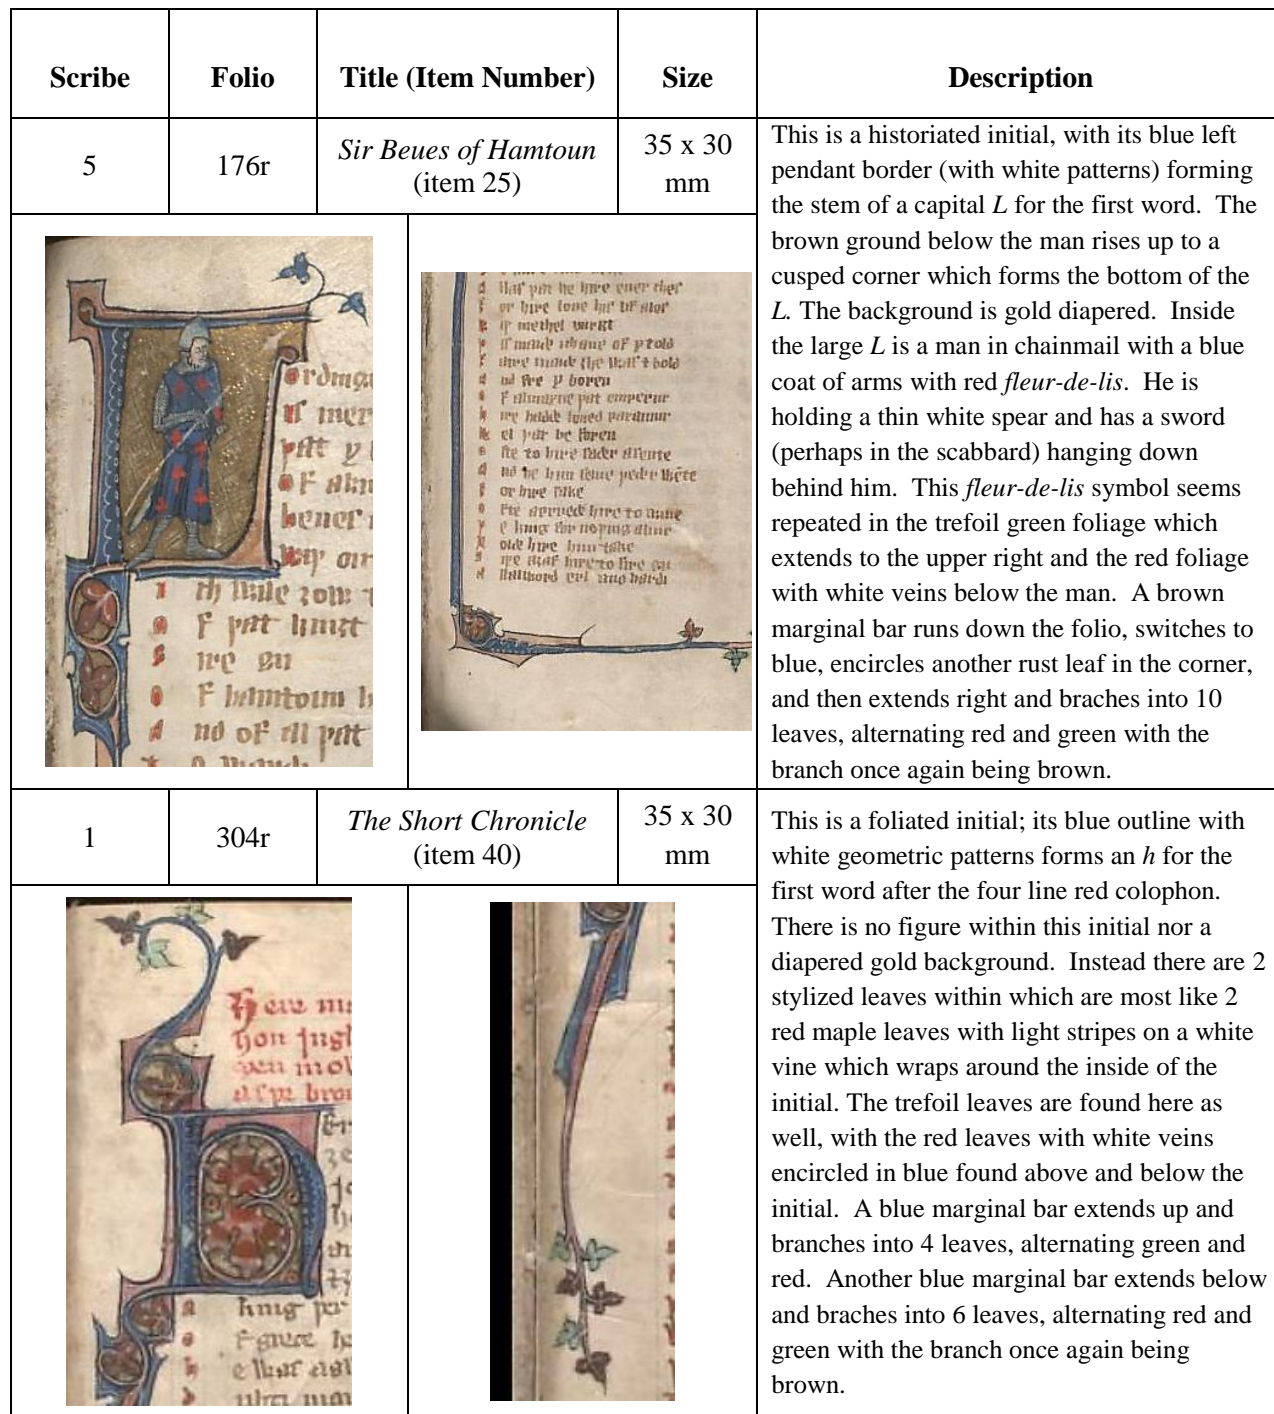 Scribe
Folio
Title (Item Number)
Size
Description
5
176r
Sir Beues of Hamtoun
(item 25)
35 x 30
mm
This is a historiated initial, with its blue left
pendant border (with white patterns) forming
the stem of a capital L for the first word. The
brown ground below the man rises up to a
cusped corner which forms the bottom of the
L. The background is gold diapered. Inside
the large L is a man in chainmail with a blue
coat of arms with red fleur-de-lis. He is
holding a thin white spear and has a sword
(perhaps in the scabbard) hanging down
behind him. This fleur-de-lis symbol seems
repeated in the trefoil green foliage which
extends to the upper right and the red foliage
with white veins below the man. A brown
marginal bar runs down the folio, switches to
blue, encircles another rust leaf in the corner,
and then extends right and braches into 10
leaves, alternating red and green with the
branch once again being brown.
1
304r
The Short Chronicle
(item 40)
35 x 30
mm
This is a foliated initial; its blue outline with
white geometric patterns forms an h for the
first word after the four line red colophon.
There is no figure within this initial nor a
diapered gold background. Instead there are 2
stylized leaves within which are most like 2
red maple leaves with light stripes on a white
vine which wraps around the inside of the
initial. The trefoil leaves are found here as
well, with the red leaves with white veins
encircled in blue found above and below the
initial. A blue marginal bar extends up and
branches into 4 leaves, alternating green and
red. Another blue marginal bar extends below
and braches into 6 leaves, alternating red and
green with the branch once again being
brown.